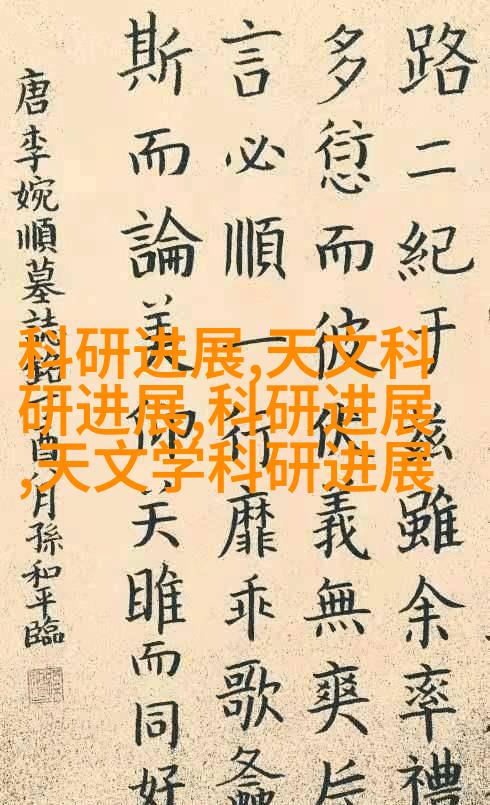 路二紀于茲雖余率禮
多愆而彼義無爽
言必順一行靡乖歌
斯而論美仰关雎而同好
唐李婉順墓誌銘酉月孫和平臨
科研进展,天文科
研进展,科研进展
,天文学科研进展